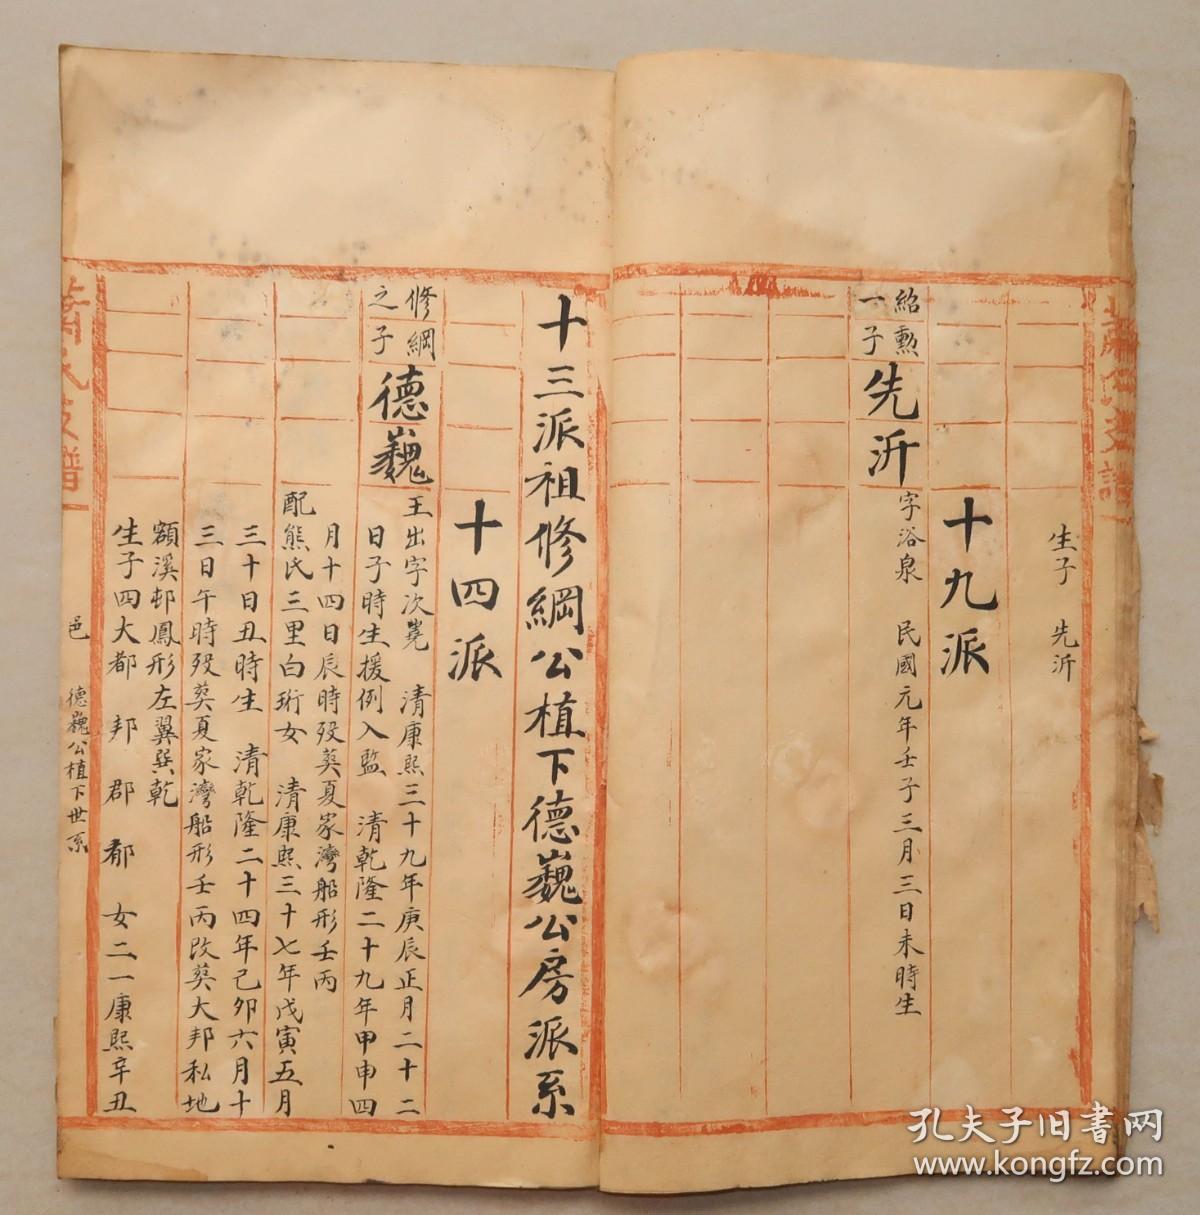 生子 先沂
十九派
紹勲
一子
先沂
字浴泉 民國元年壬子三月三日未時生
十三派祖修綱公植下德巍公房派系
十四派
修綱
之子
德巍
王出字次嶤 清康熙三十九年庚辰正月二十二
日子時生援例入監 清乾隆二十九年甲申四
月十四日辰時殁葵夏家灣船形壬丙
配熊氏三里白珩女 清康熙三十七年戊寅五月
三十日丑時生 清乾隆二十四年己夘六月十
三日午時殁葵夏家灣船形壬丙改葵大邦私地
額溪邨鳳形左翼巽乾
生子四大都 邦 郡 都 女二一康熙辛丑
邑 德巍公植下世系
蕭氏支譜
蕭氏支譜
孔夫子旧书网
www.kongfz.com